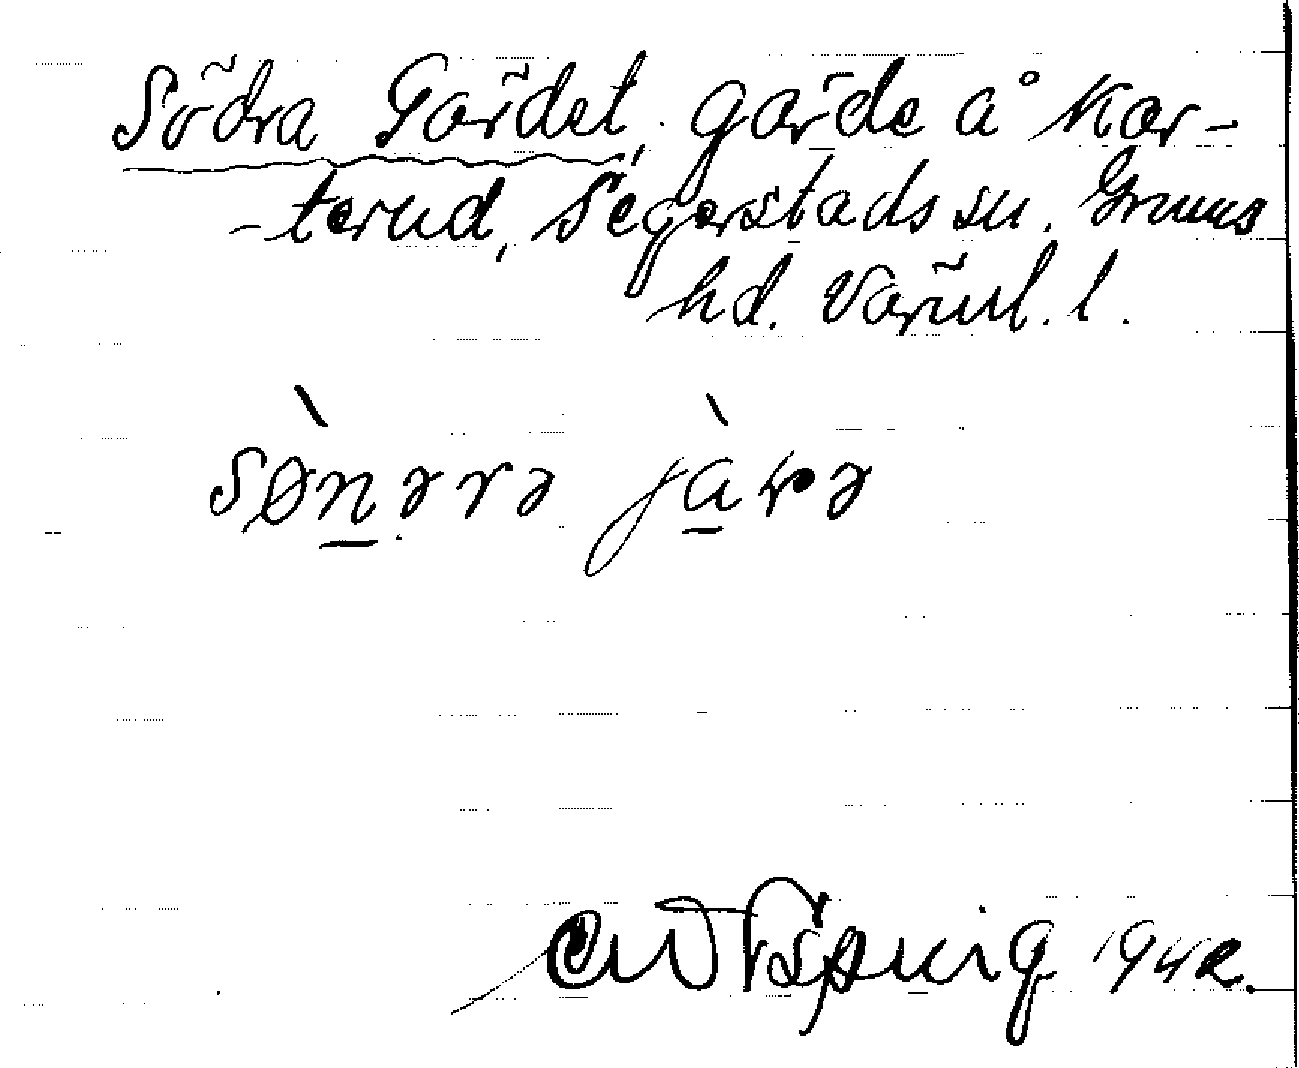 Södra Gärdet, gärde å Kar-
-terud, Segerstads sn. Grums
hd. Värml. l.
sønərə jàrə
1942.